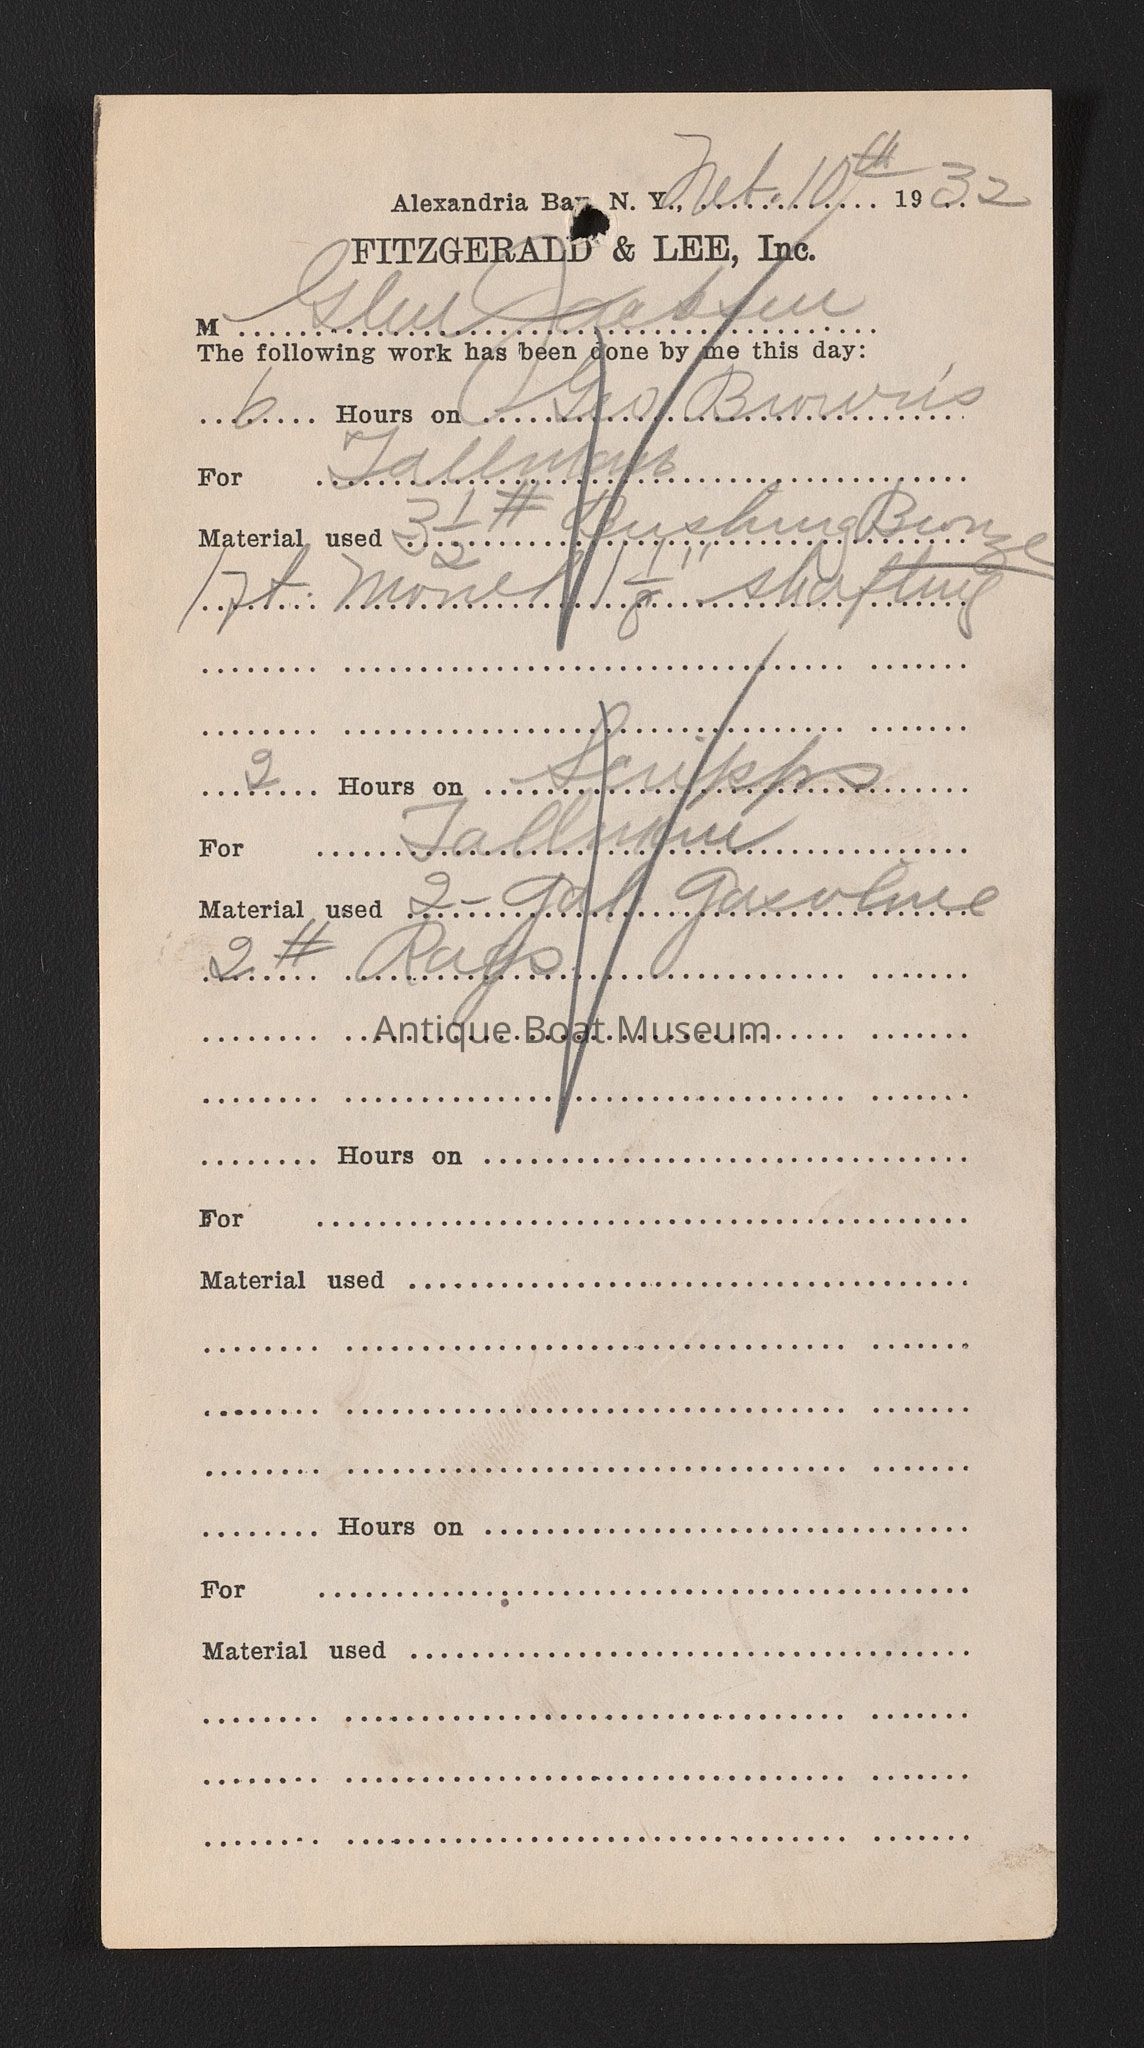 Alexandria Bay, N. Y., 10th 1932
FITZGERALD & LEE, Inc.
M Glen Jacobsen
The following work has been done by me this day:
6 Hours on Geo Brown's
For Tallman
Material used 3 1/2 # Bushing Bronze
1 ft. Monel 1 1/8" shafting
2 Hours on Scripps
For Tallman
Material used 2 - Gal Gasoline
2 # Rags
Antique Boat Museum
Hours on
For
Material used
Hours on
For
Material used